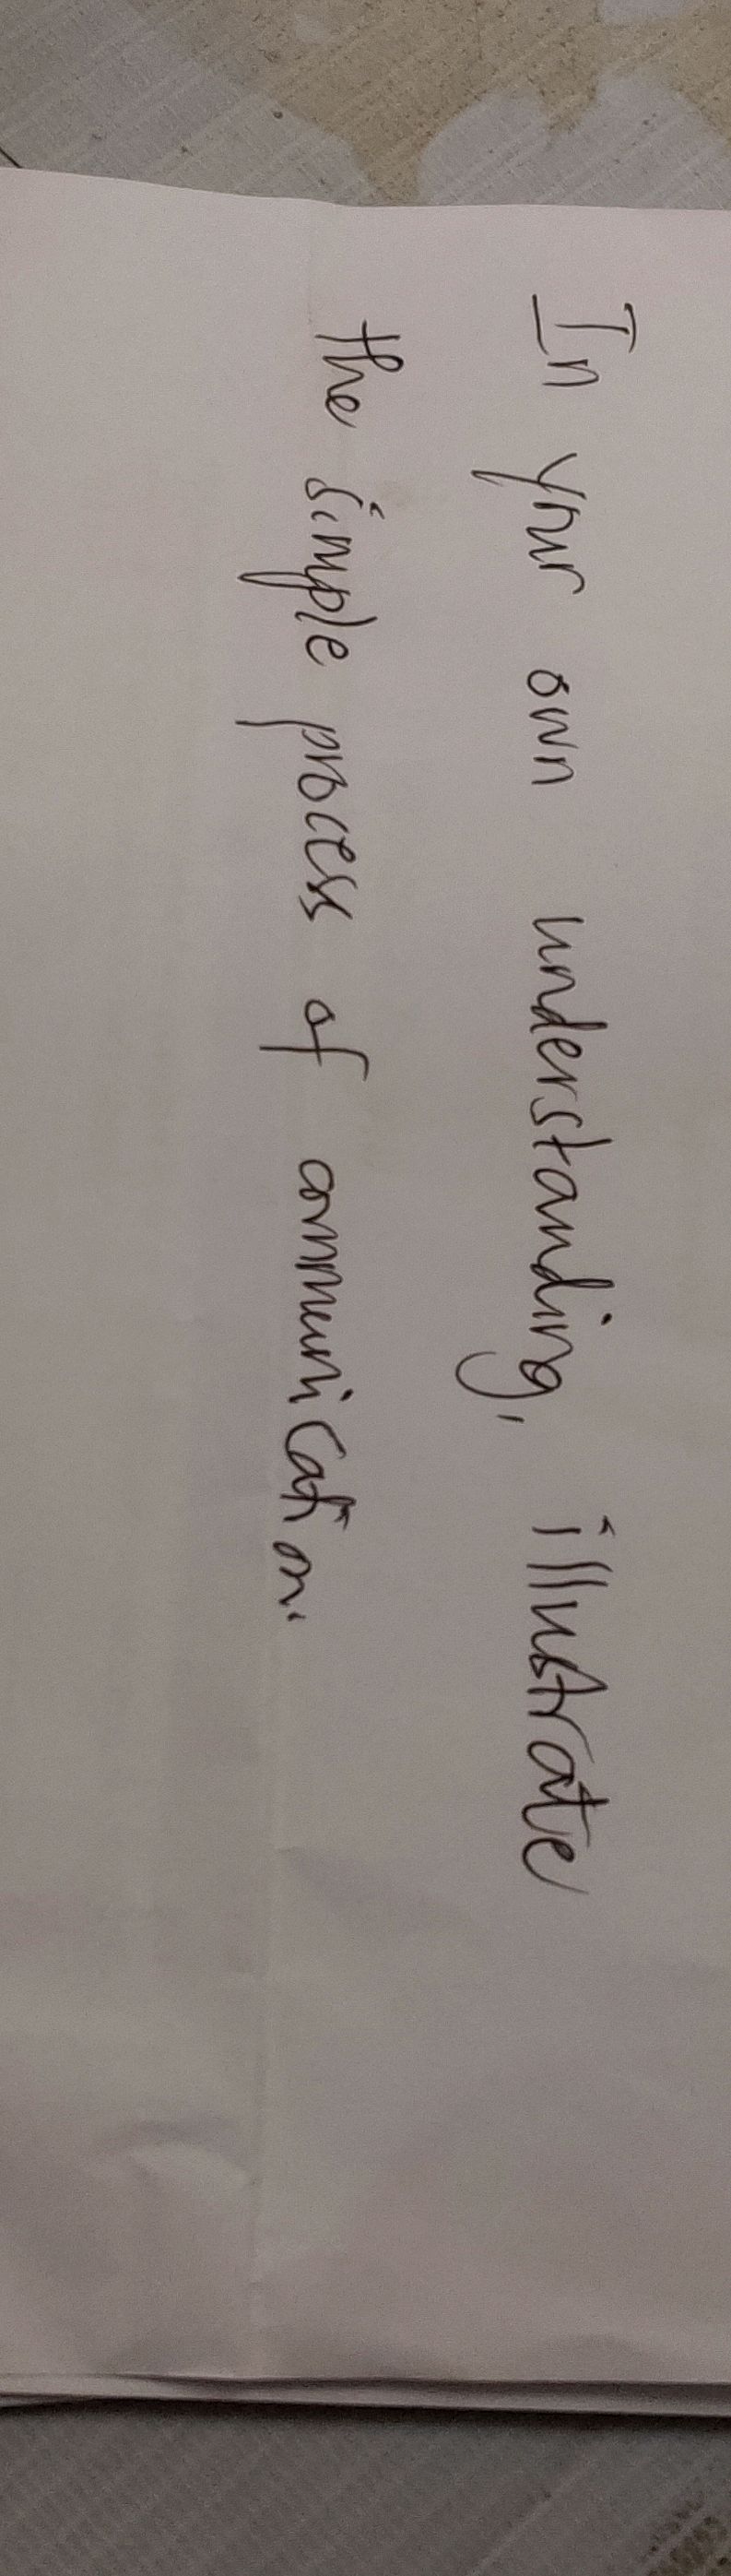 In your own understanding, illustrate
the simple process of communication.